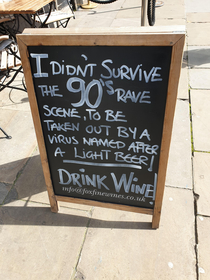 I DIDN'T SURVIVE
THE 90'S RAVE
SCENE, TO BE
TAKEN OUT BY A
VIRUS NAMED AFTER
A LIGHT BEER!
DRINK WINE!
info@foxfinewines.co.uk